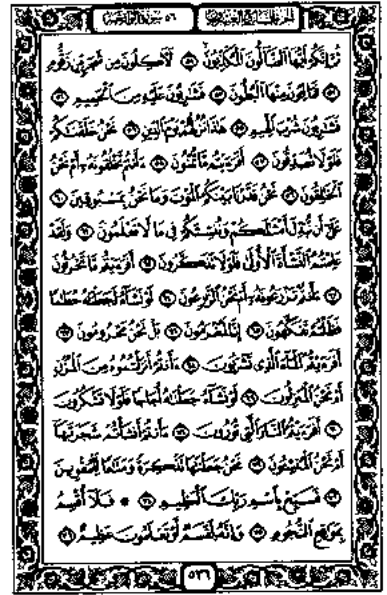 الجزء السابع والعشرون ٥٦ سورة الواقعة
ثُمَّ إِنَّكُمْ أَيُّهَا ٱلضَّآلُّونَ ٱلْمُكَذِّبُونَ ٥١ لَـَٔاكِلُونَ مِن شَجَرٍ مِّن زَقُّومٍ
٥٢ فَمَالِـُٔونَ مِنْهَا ٱلْبُطُونَ ٥٣ فَشَٰرِبُونَ عَلَيْهِ مِنَ ٱلْحَمِيمِ ٥٤
فَشَٰرِبُونَ شُرْبَ ٱلْهِيمِ ٥٥ هَٰذَا نُزُلُهُمْ يَوْمَ ٱلدِّينِ ٥٦ نَحْنُ خَلَقْنَٰكُمْ
فَلَوْلَا تُصَدِّقُونَ ٥٧ أَفَرَءَيْتُم مَّا تُمْنُونَ ٥٨ ءَأَنتُمْ تَخْلُقُونَهُۥٓ أَمْ نَحْنُ
ٱلْخَٰلِقُونَ ٥٩ نَحْنُ قَدَّرْنَا بَيْنَكُمُ ٱلْمَوْتَ وَمَا نَحْنُ بِمَسْبُوقِينَ ٦٠
عَلَىٰٓ أَن نُّبَدِّلَ أَمْثَٰلَكُمْ وَنُنشِئَكُمْ فِى مَا لَا تَعْلَمُونَ ٦١ وَلَقَدْ
عَلِمْتُمُ ٱلنَّشْأَةَ ٱلْأُولَىٰ فَلَوْلَا تَذَكَّرُونَ ٦٢ أَفَرَءَيْتُم مَّا تَحْرُثُونَ
٦٣ ءَأَنتُمْ تَزْرَعُونَهُۥٓ أَمْ نَحْنُ ٱلزَّٰرِعُونَ ٦٤ لَوْ نَشَآءُ لَجَعَلْنَٰهُ حُطَٰمًا
فَظَلْتُمْ تَفَكَّهُونَ ٦٥ إِنَّا لَمُغْرَمُونَ ٦٦ بَلْ نَحْنُ مَحْرُومُونَ ٦٧
أَفَرَءَيْتُمُ ٱلْمَآءَ ٱلَّذِى تَشْرَبُونَ ٦٨ ءَأَنتُمْ أَنزَلْتُمُوهُ مِنَ ٱلْمُزْنِ
أَمْ نَحْنُ ٱلْمُنزِلُونَ ٦٩ لَوْ نَشَآءُ جَعَلْنَٰهُ أُجَاجًا فَلَوْلَا تَشْكُرُونَ
٧٠ أَفَرَءَيْتُمُ ٱلنَّارَ ٱلَّتِى تُورُونَ ٧١ ءَأَنتُمْ أَنشَأْتُمْ شَجَرَتَهَآ
أَمْ نَحْنُ ٱلْمُنشِـُٔونَ ٧٢ نَحْنُ جَعَلْنَٰهَا تَذْكِرَةً وَمَتَٰعًا لِّلْمُقْوِينَ
٧٣ فَسَبِّحْ بِٱسْمِ رَبِّكَ ٱلْعَظِيمِ ٧٤ ۞ فَلَآ أُقْسِمُ
بِمَوَٰقِعِ ٱلنُّجُومِ ٧٥ وَإِنَّهُۥ لَقَسَمٌ لَّوْ تَعْلَمُونَ عَظِيمٌ ٧٦
٥٣٦